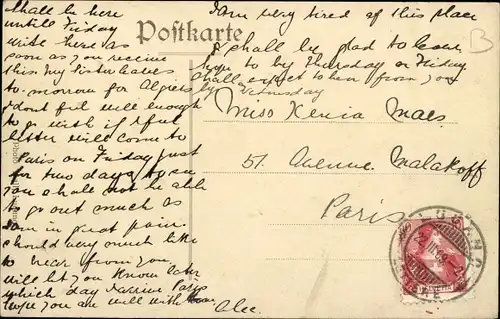 Postkarte
Shall be here
until Friday
write here as
soon as you receive
this my sister leaves
to-morrow for Algiers
I dont feel well enough
to go with if I feel
better will come to
Paris on Friday just
for two days to see
you shall not be able
to go out much as
I am in great pain
should very much like
to hear from you
will let you know later
which day I arrive Paris
hope you are well with love
Alec.
I am very tired of this place
I shall be glad to leave
hope to by Thursday or Friday
shall expect to hear from you
by Wednesday
Miss Xenia Maes
51. Avenue. Malakoff
Paris
LUGANO
HELVETIA
B